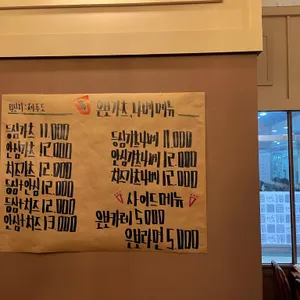 원산지 : 제주도
온반카츠, 나베 메뉴
등심카츠 11.000
안심카츠 12.000
치즈카츠 12.000
등심+안심 12.000
등심+치즈 12.000
안심+치즈 13.000
등심카츠나베 11.000
안심카츠나베 12.000
치즈카츠나베 12.000
사이드메뉴
온반카레 5.000
온반라면 5.000